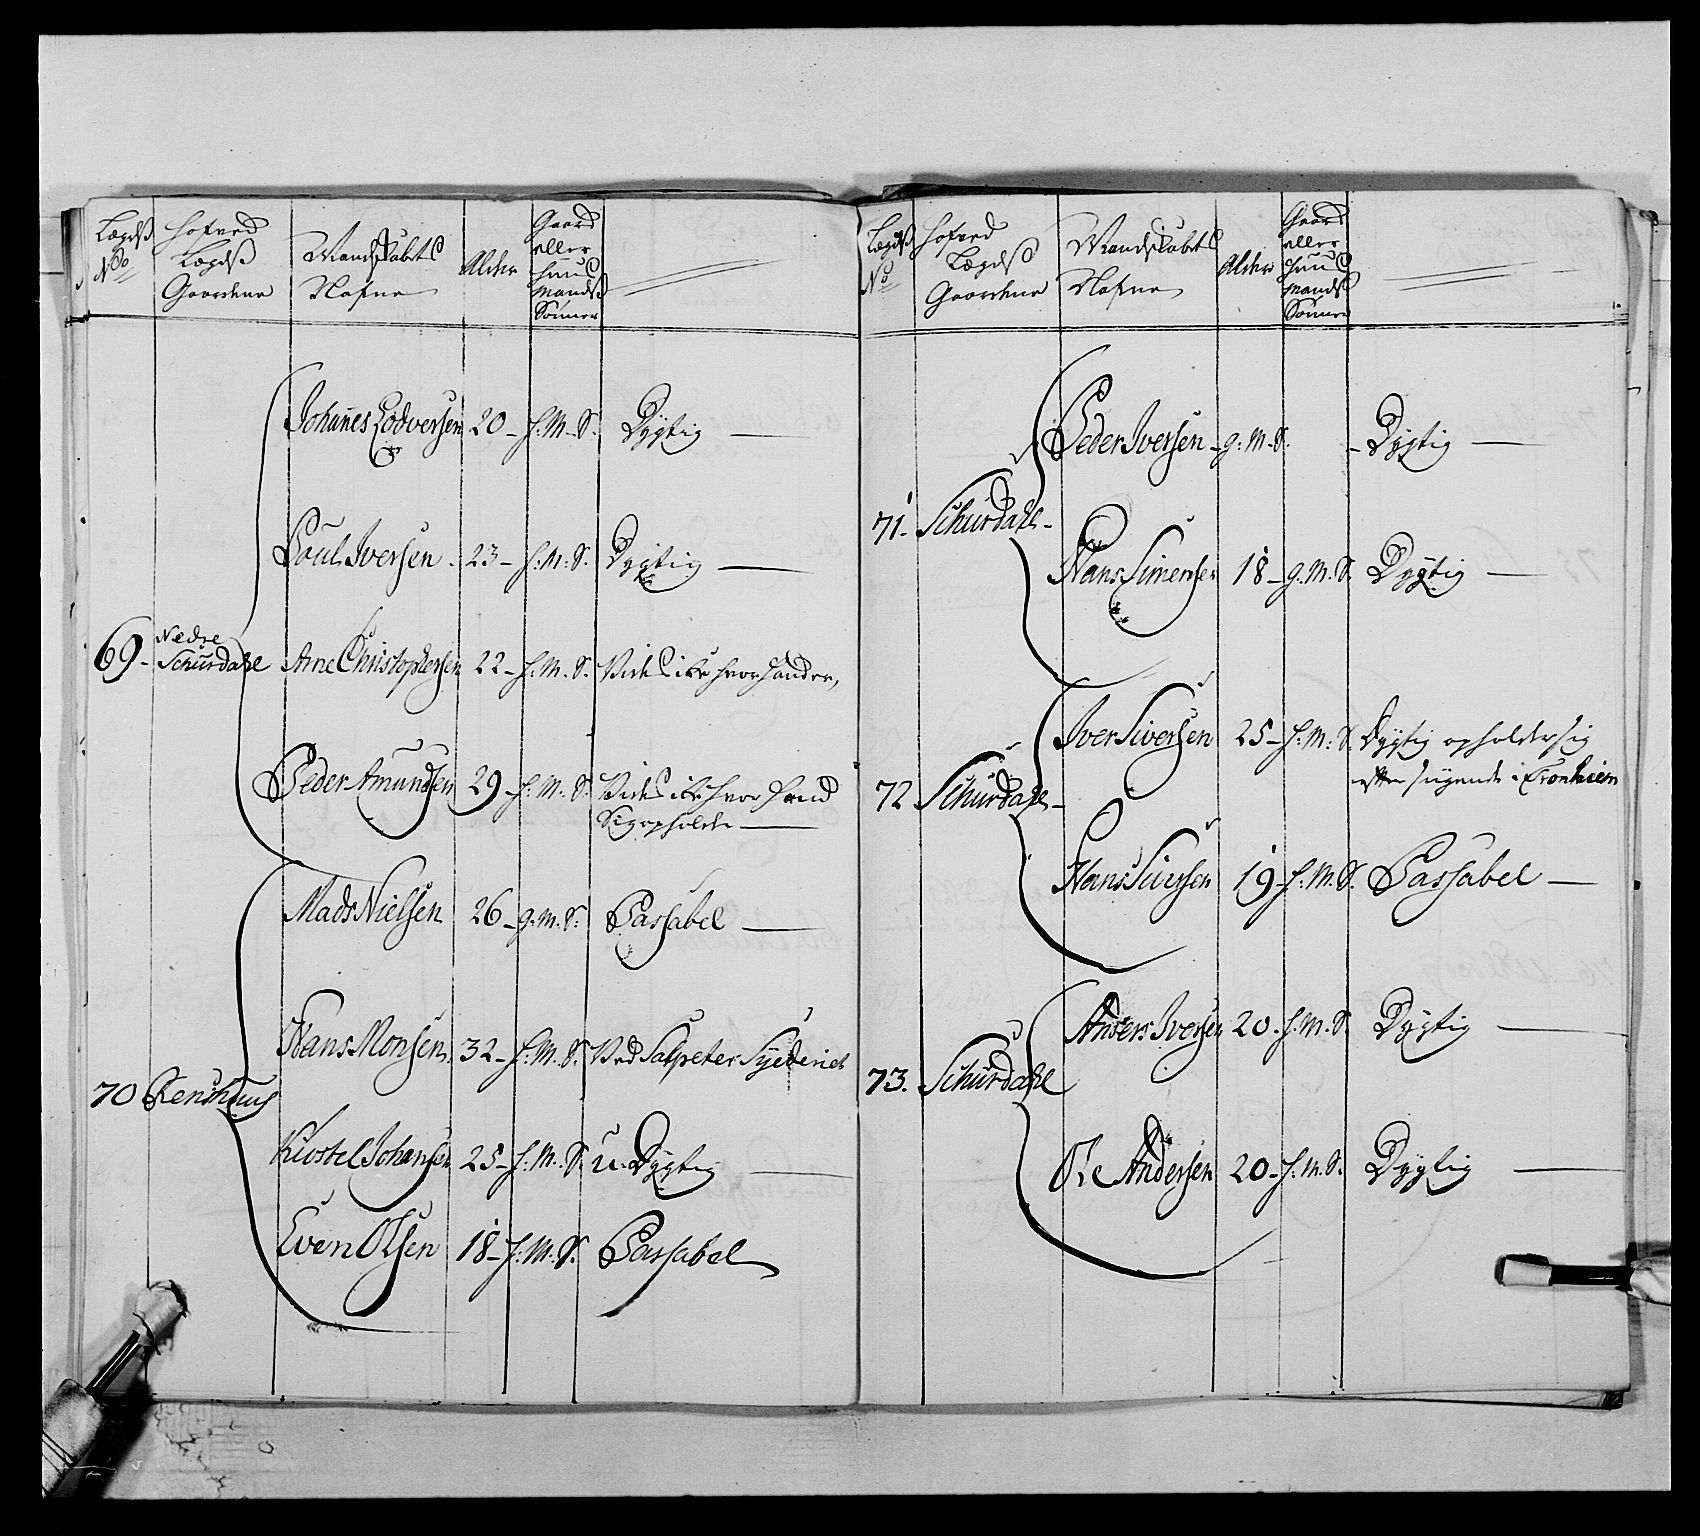 Lægds No
Hofved Lægds Gaardene
Mandskabets Nafne
Alder
Gaard eller Huus Mands Sønner
Johannes Lodversen 20 - H. M. S. Dygtig
Poul Iversen. 23 - H. M. S. Dygtig
69 - Nedre Schurdahl Arne Christophersen 22 - H. M. S. Vides ike hvor hand er,
Peder Amundsen 29 - H. M. S. Vides ike hvor hand
Sig opholde
Mads Nielsen 26 - g. M. S. Passabel
Hans Monsen. 32 - H. M. S. Ved Salpeter Syederiet
70 Renshuus
Kiostel Johansen 25 - H. M. S. u. Dygtig
Even Olsen 18 - H. M. S. Passabel
Lægds No
Hofved Lægds Gaardene
Mandskabets Nafne
Alder
Gaard eller Huus Mands Sønner
Peder Iversen - g. M. S. - Dygtig
71. Schurdahl -
Hans Simensen 18 - g. M. S. Dygtig
Iver Siversen 25 - H. M. S. Dygtig opholder sig
efter sigende i Tronhiem
72 Schurdahl -
Hans Siversen 19 - H. M. S. Passabel
Anders Iversen 20. H. M. S. Dygtig
73. Schurdahl
Ole Andersen 20 - H. M. S. Dygtig